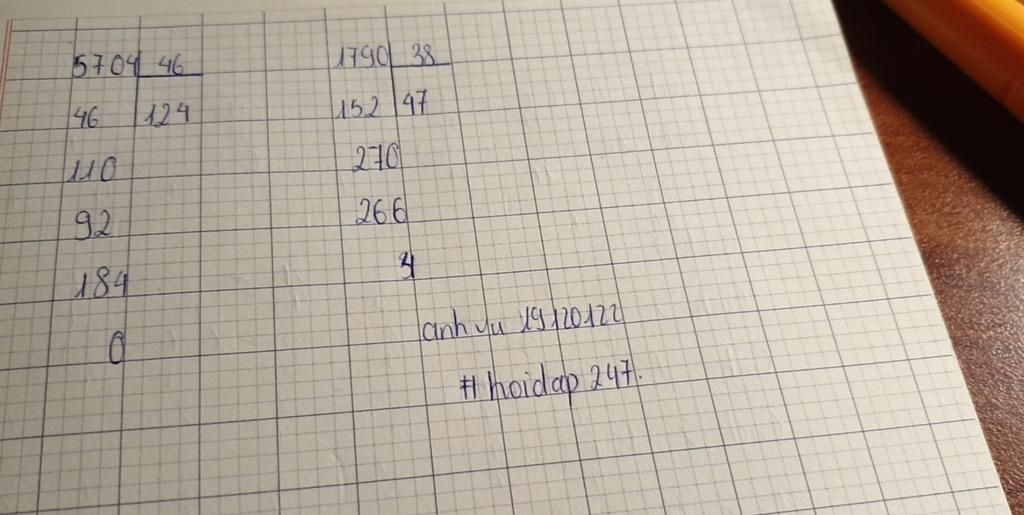 5704 46
46 124
110
92
184
0
1790 38
152 47
270
266
4
anhvu 19120122
# hoidap 247.